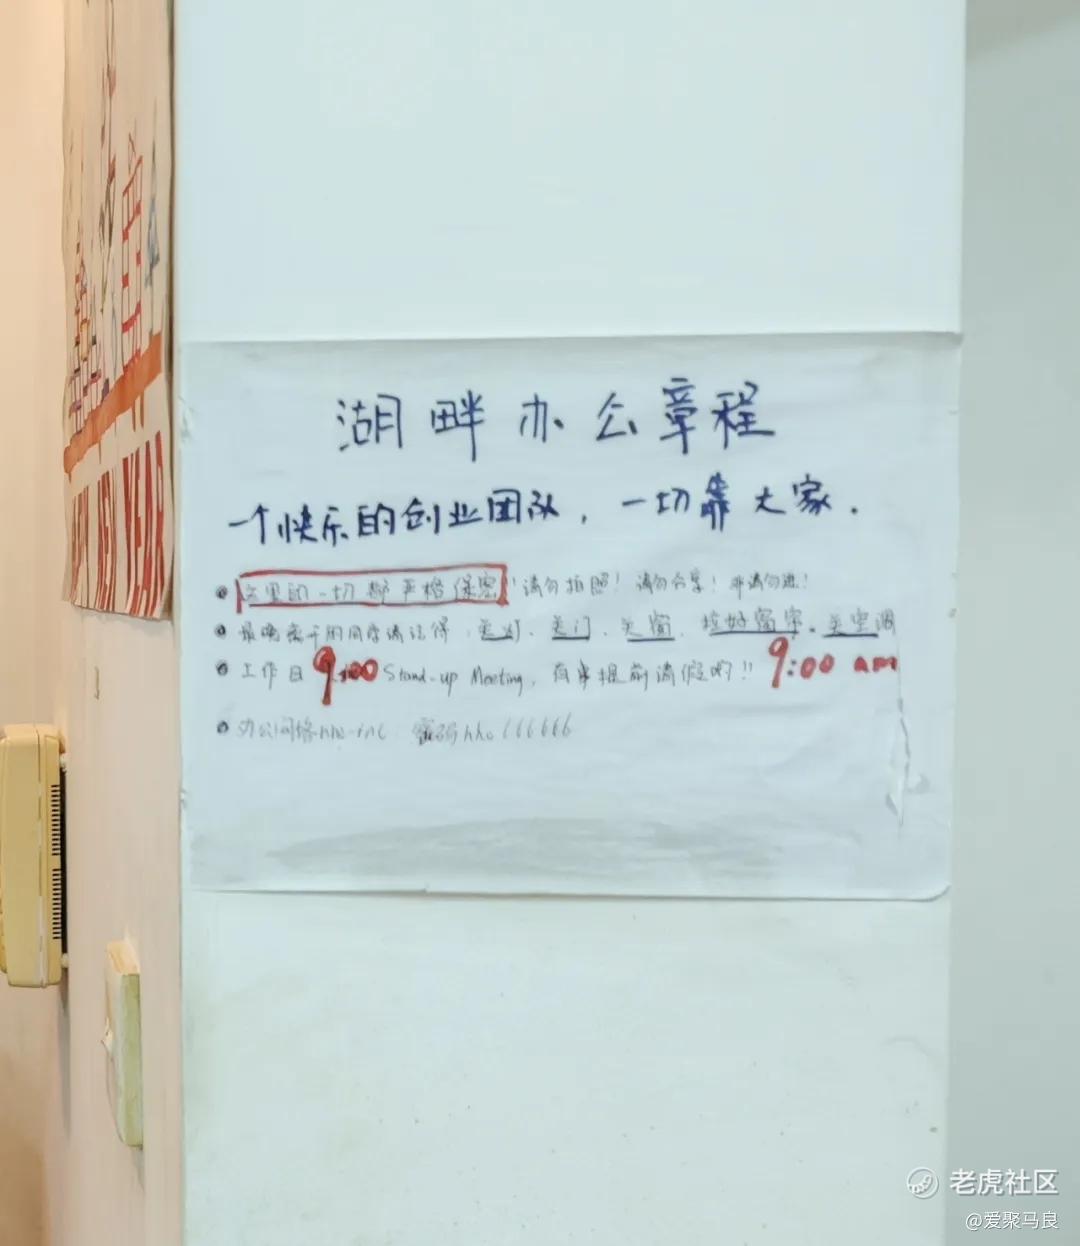 湖畔办公章程
一个快乐的创业团队，一切靠大家.
这里的一切都严格保密！请勿拍照！请勿分享！非请勿进！
最晚离开的同学请记得，关灯、关门、关窗、拉好窗帘、关空调
工作日 9:00 Stand-up Meeting，有事提前请假哟!! 9:00 am
办公网络 密码 666666
YEAR
老虎社区
@爱聚马良